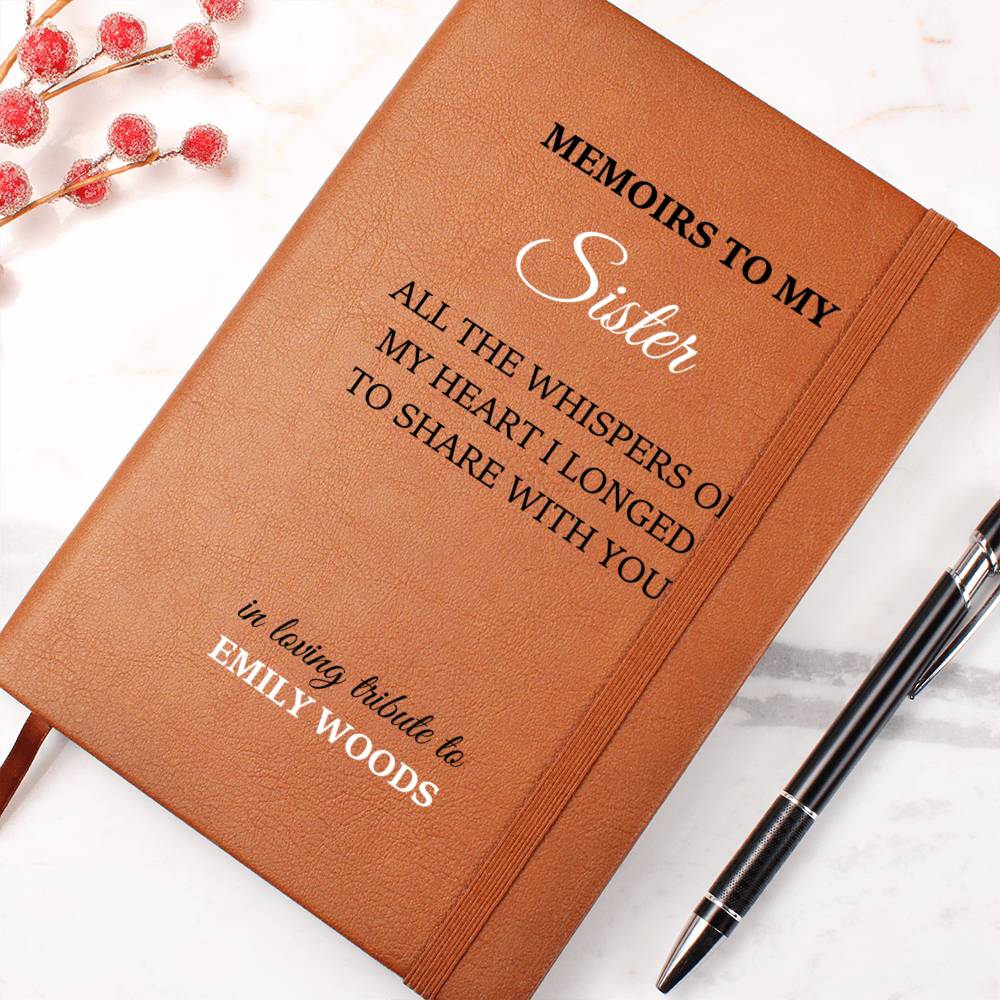 MEMOIRS TO MY
Sister
ALL THE WHISPERS OF
MY HEART I LONGED
TO SHARE WITH YOU
in loving tribute to
EMILY WOODS